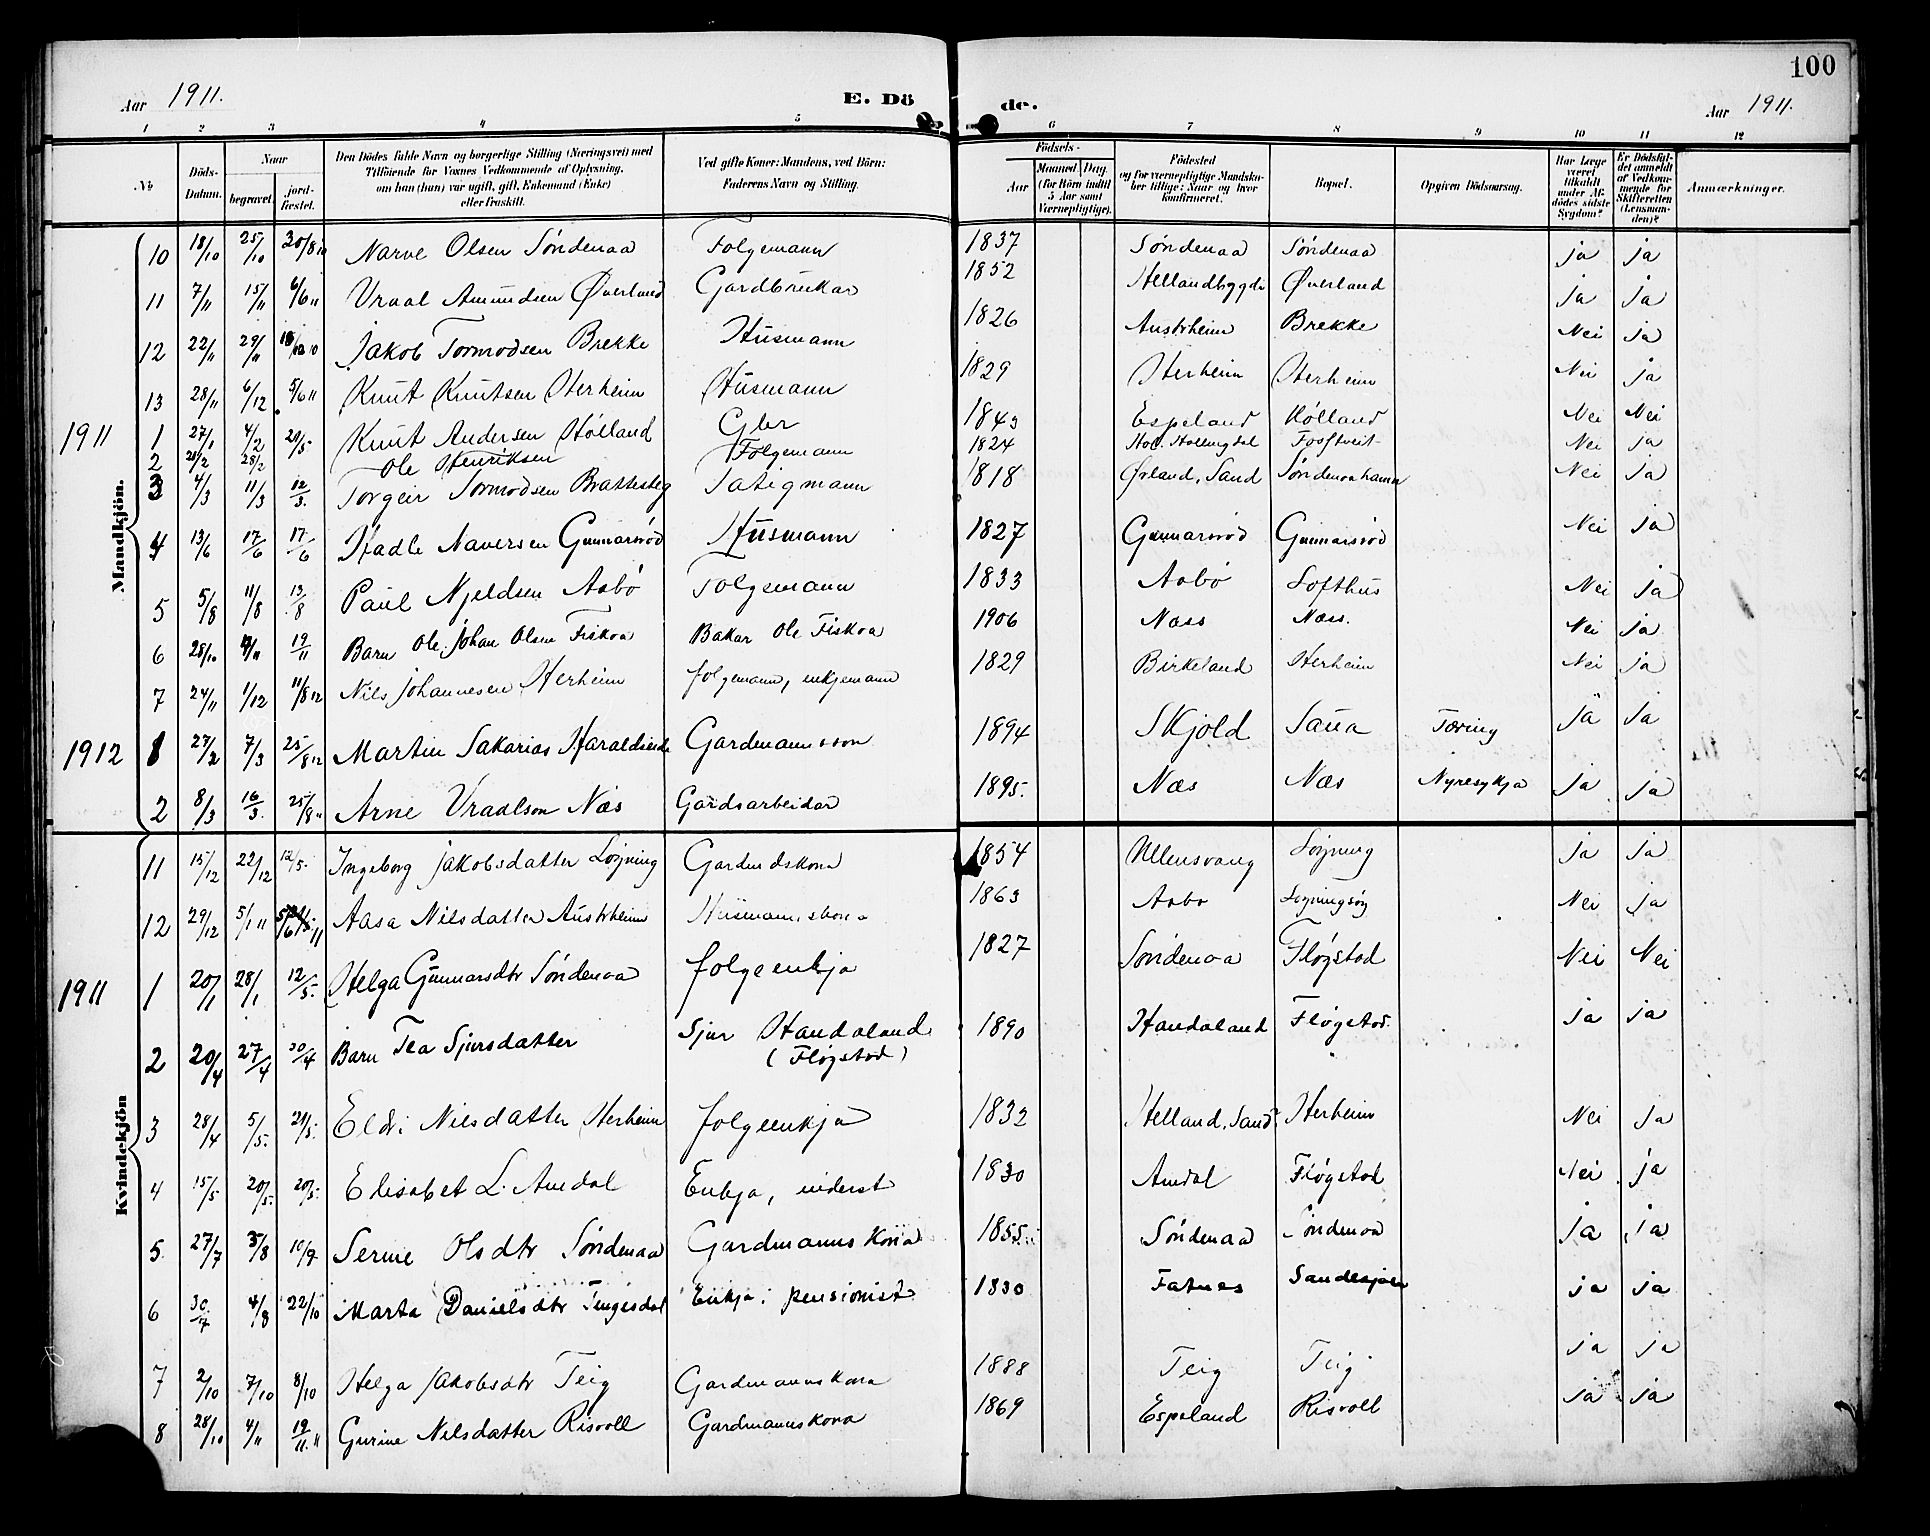 100
Aar 1911. E. Dö de. Aar 1911.
1 2 3 4 5 6 7 8 9 10 11 12
№ Döds-Datum. Naar begravet. jordfæstet. Den Dödes fulde Navn og borgerlige Stilling (Næringsvei) med Tilföiende for Voxnes Vedkommende af Oplysning, om han (hun) var ugift, gift, Enkemand (Enke) eller fraskilt. Ved gifte Koner: Mandens, ved Börn: Faderens Navn og Stilling. Födsels- Aar Maaned Dag. (for Börn indtil 5 Aar samt Værnepligtige). Födested og for værnepligtige Mandskaber tillige: Naar og hvor konfirmeret. Bopæl. Opgiven Dödsaarsag. Har Læge været tilkaldt under Afdödes sidste Sygdom? Er Dödsfaldet anmeldt af Vedkommende for Skifteretten (Lensmanden)? Anmærkninger.
Mandkjön.
10 18/10 25/10 20/8 10 Narve Olsen Söndenaa Folgemann 1837 Söndenaa Söndenaa ja ja
11 7/11 15/11 6/6 11 Vraal Amundsen Øverland Gardbrukar 1852 Hellandbygdi Øverland ja ja
12 22/11 29/11 Jakob Tormodsen Brekke Husmann 1826 Austrheim Brekke Nei ja
13 28/11 6/12 5/6 11 Knut Knutsen Herheim Husmann 1829 Herheim Herheim Nei ja
1911 1 27/1 4/2 20/5 Knut Andersen Hölland Gbr 1843 Espeland Hölland Nei Nei
2 28/2 Ole Henriksen Folgemann 1824 Hol. Hallingdal Nei ja
3 4/3 11/3 12/3. Torgeir Tormodsen Brattesteg Fatigmann 1818 Ørland, Sand Söndenaahamn Nei ja
4 13/6 17/6 17/6 Hadle Naversen Gunnarsröd Husmann 1827 Gunnarsröd Gunnarsröd Nei ja
5 5/8 11/8 13/8 Paul Kjeldsen Aabö Folgemann 1833 Aabö Lofthus Nei ja
6 28/10 4/11 19/11 Barn Ole Johan Olsen Fiskaa Bakar Ole Fiskaa 1906 Næss Næss. Nei ja
7 24/11 1/12 11/8 12 Nils Johannesen Herheim folgemann, enkjemann 1829 Birkeland Herheim Nei ja
1912 1 27/2 7/3 25/8 12 Martin Sakarias Haraldseide Gardmannsson 1894 Skjold Saua Tæring ja ja
2 8/3 16/3. 25/8 " Arne Vraalson Næs Gardsarbeidar 1895. Næs Næs Nyresykja ja ja
Kvindekjön
11 15/12 22/12 12/5. Ingeborg Jakobsdatter Löjning Gardmdskona 1854 Ullensvang Löjning ja ja
12 29/12 5/1 11 Aasa Nilsdatter Austrheim Husmannskona 1863 Aabö Nei ja
1911 1 20/1 28/1 12/5. Helga Gunnarsdtr Söndenaa folgeenkja 1827 Söndenaa Flögstad Nei Nei
2 20/4 27/4 30/4 Barn Tea Sjursdatter Sjur Handaland (Flögstad) 1890 Handaland Flögstad. ja ja
3 28/4 5/5. 21/5. Eldri Nilsdatter Herheim folgeenkja 1832 Helland, Sand. Herheim Nei ja
4 15/5 20/5. 20/5. Elisabet L. Amdal Enkja, inderst 1830 Amdal Flögstad Nei ja
5. 27/7 3/8 10/9. Serine Olsdtr Söndenaa Gardmannskona 1855 Söndenaa Söndenaa ja ja
6 30/7 4/8 22/10 Marta Danielsdtr Tengesdal Enkja, pensionist 1830 Fatnes Sandesjøen ja ja
7 2/10 7/10 8/10 Helga Jakobsdtr Teig Gardmannskona 1888 Teig Teig ja ja
8 28/10 4/11 19/11. 11 Gurine Nilsdatter Risvoll Gardmannskona 1869 Espeland Risvoll ja ja